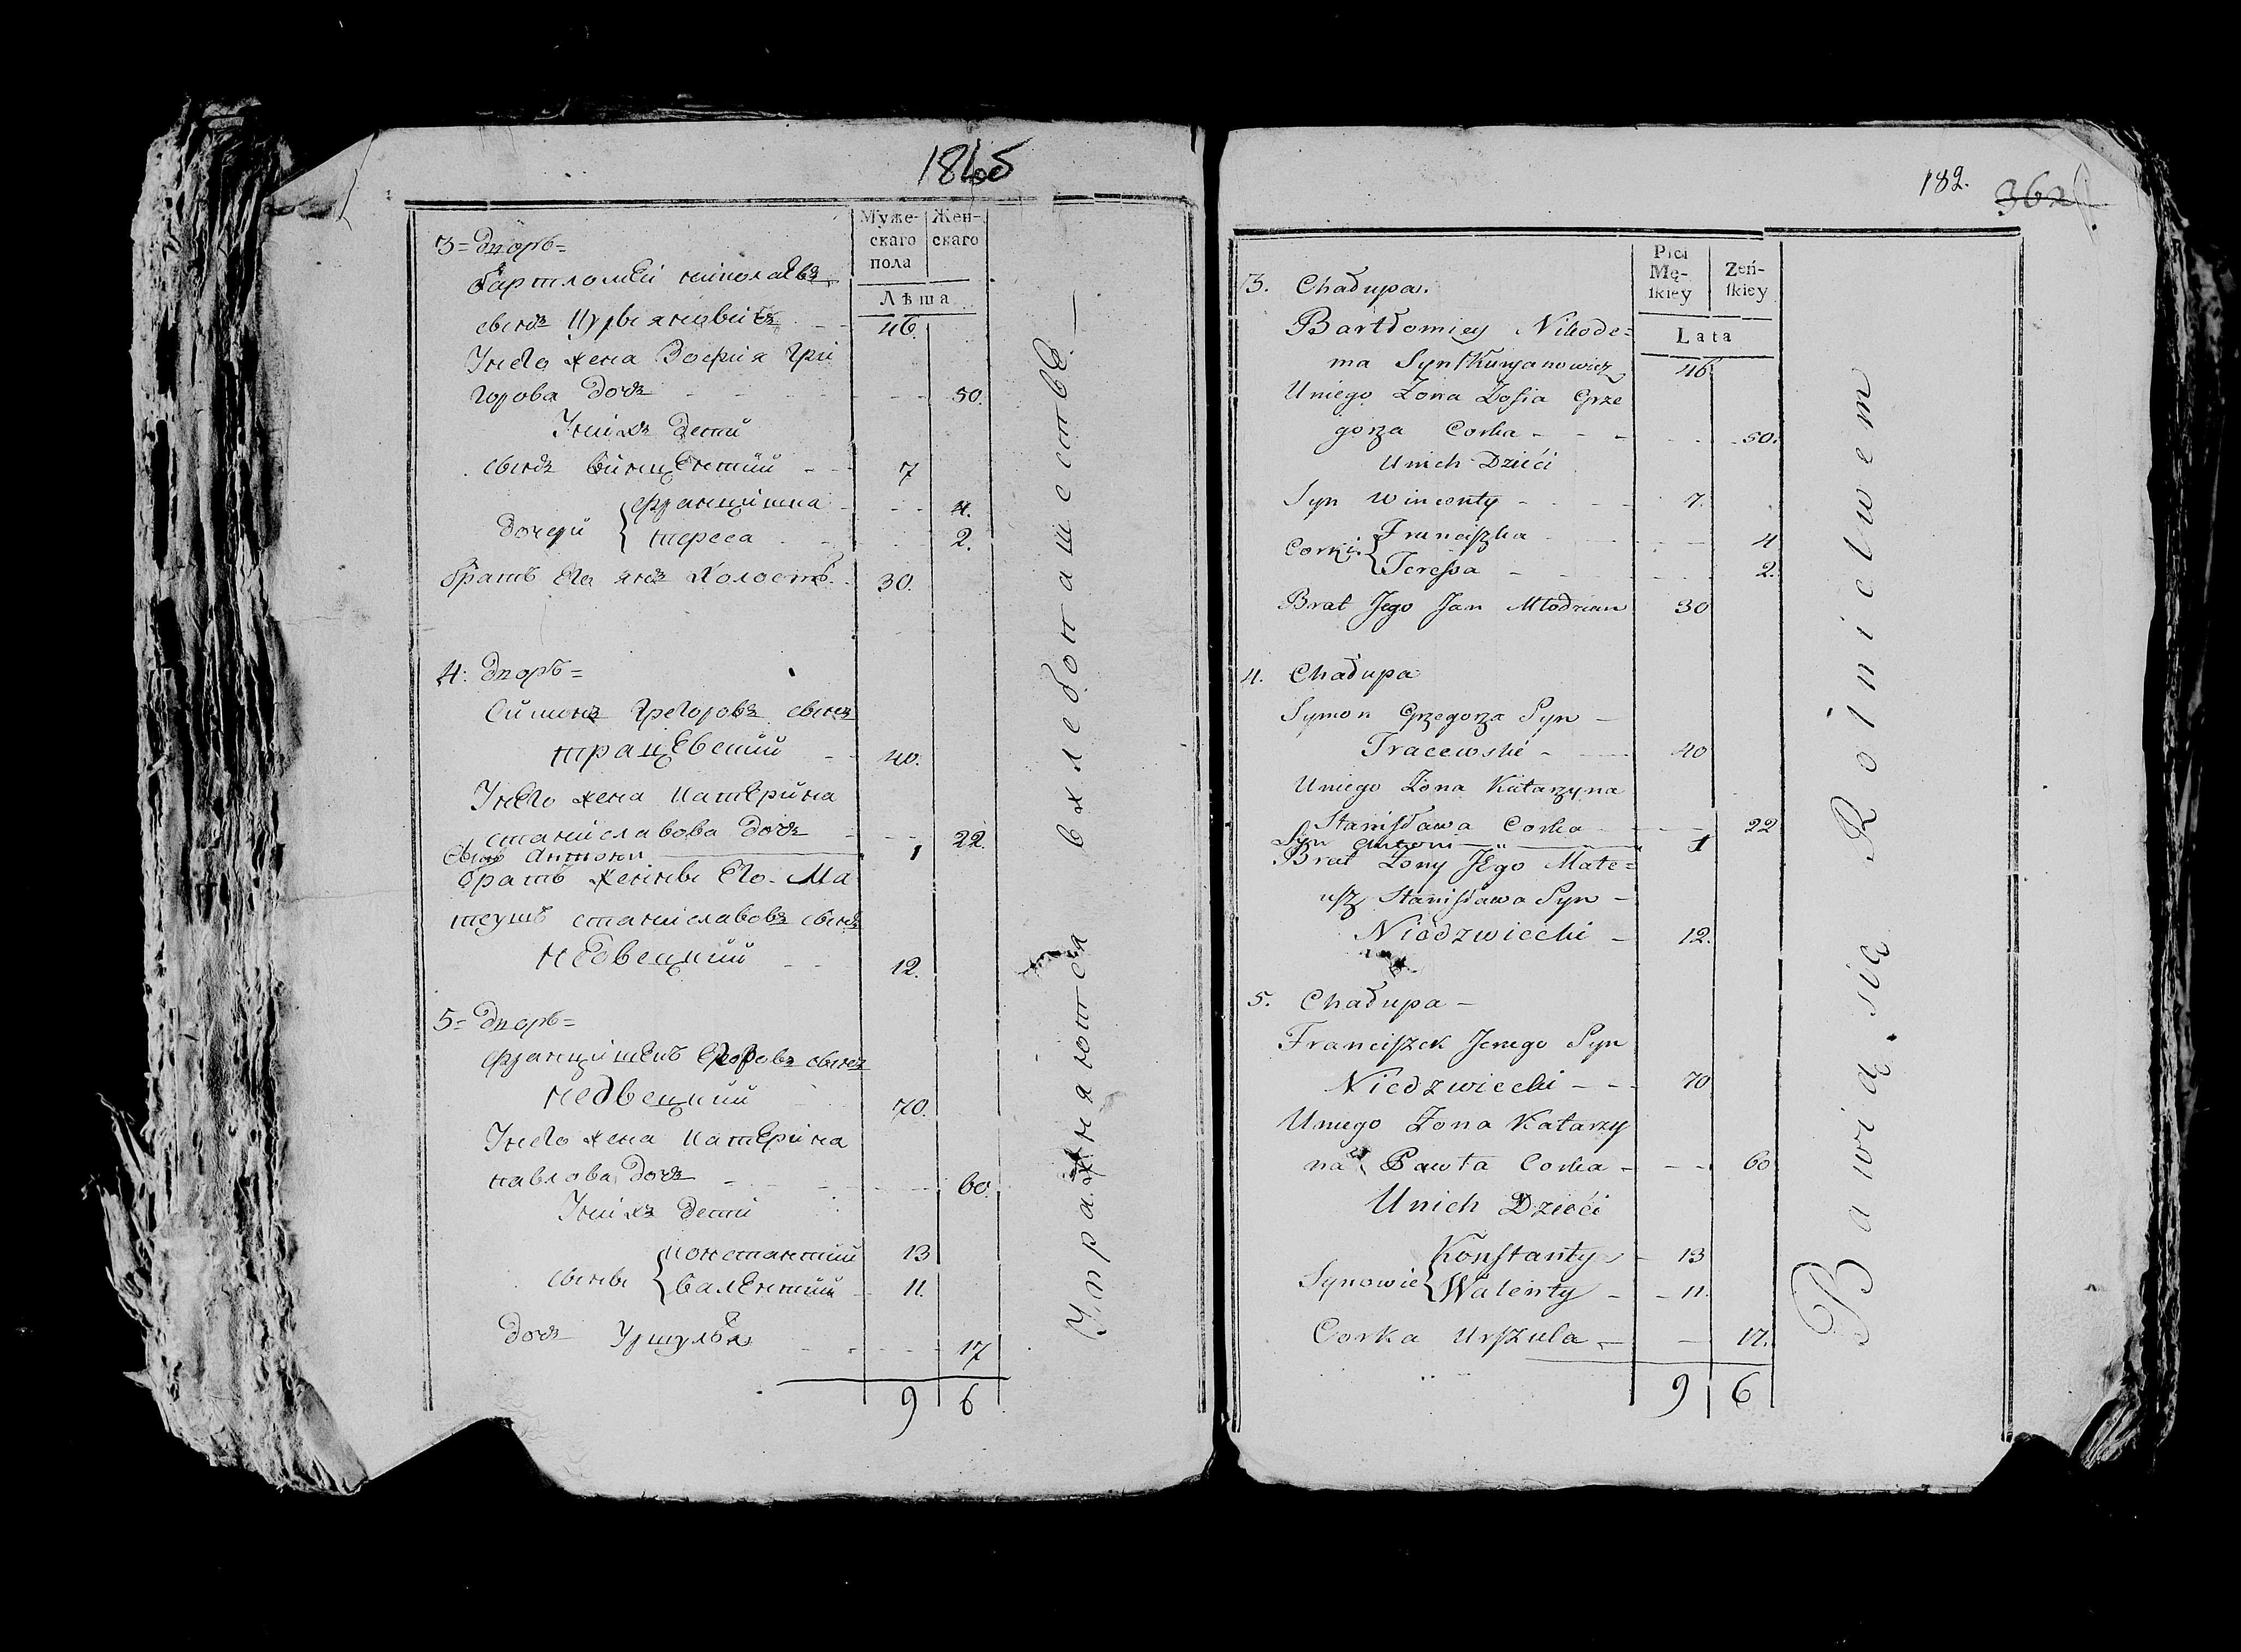 3 = Дворъ =
Муже-
скаго
пола
Жен-
скаго
Лѣта
сынъ
46.
У него жена Зофия Гри
горова дочь 50.
У нихъ дети
сынъ Винцентий 7
дочери { Францишка 4.
тереса 2.
братъ Его янъ Холостъ 30.
4: Дворъ =
Симонъ Грегоровъ сынъ
трацевский 40.
У него жена Катерина
станиславова дочь 22.
сынъ Антони 1
братъ жены Его Ма
теушъ станиславовъ сынъ
недвецкий 12.
5 = Дворъ =
францишекъ сынъ
недвецкий 70.
У него жена Катерина
павлова дочь 60.
У нихъ дети
сыны { Константий 13
валентий 11.
дочь 17
9 6
Упражняются въ хлебопашестве.
182.
362
3. Chałupa.
Płci
Mę-
skiey
Zeń-
skiey
Lata
Bartłomiey Nikode=
ma Syn Kuryanowicz 46
Uniego Zona Zofia Grze
gorza Corka - - - 50.
Unich Dzieći
Syn Wincenty - - 7.
Corki { Franciszka 4
Teressa - 2.
Brat Jego Jan Młodzian 30
4. Chałupa
Symon Grzegorza Syn -
Tracewski - 40
Uniego Zona Katarzyna
Stanisława Corka 22
Syn Antoni 1
Brat Zony JEgo Mate=
usz Stanisława Syn -
Niedzwiecki - 12.
5. Chałupa -
Franciszek Syn
Niedzwiecki - - - 70
Uniego Zona Katarzy
na Pawła Corka - - - 60
Unich Dzieći
Synowie { Konstanty - 13
Walenty - - 11.
Corka Urszula - - 17.
9 6
Bawią się Rolnictwem